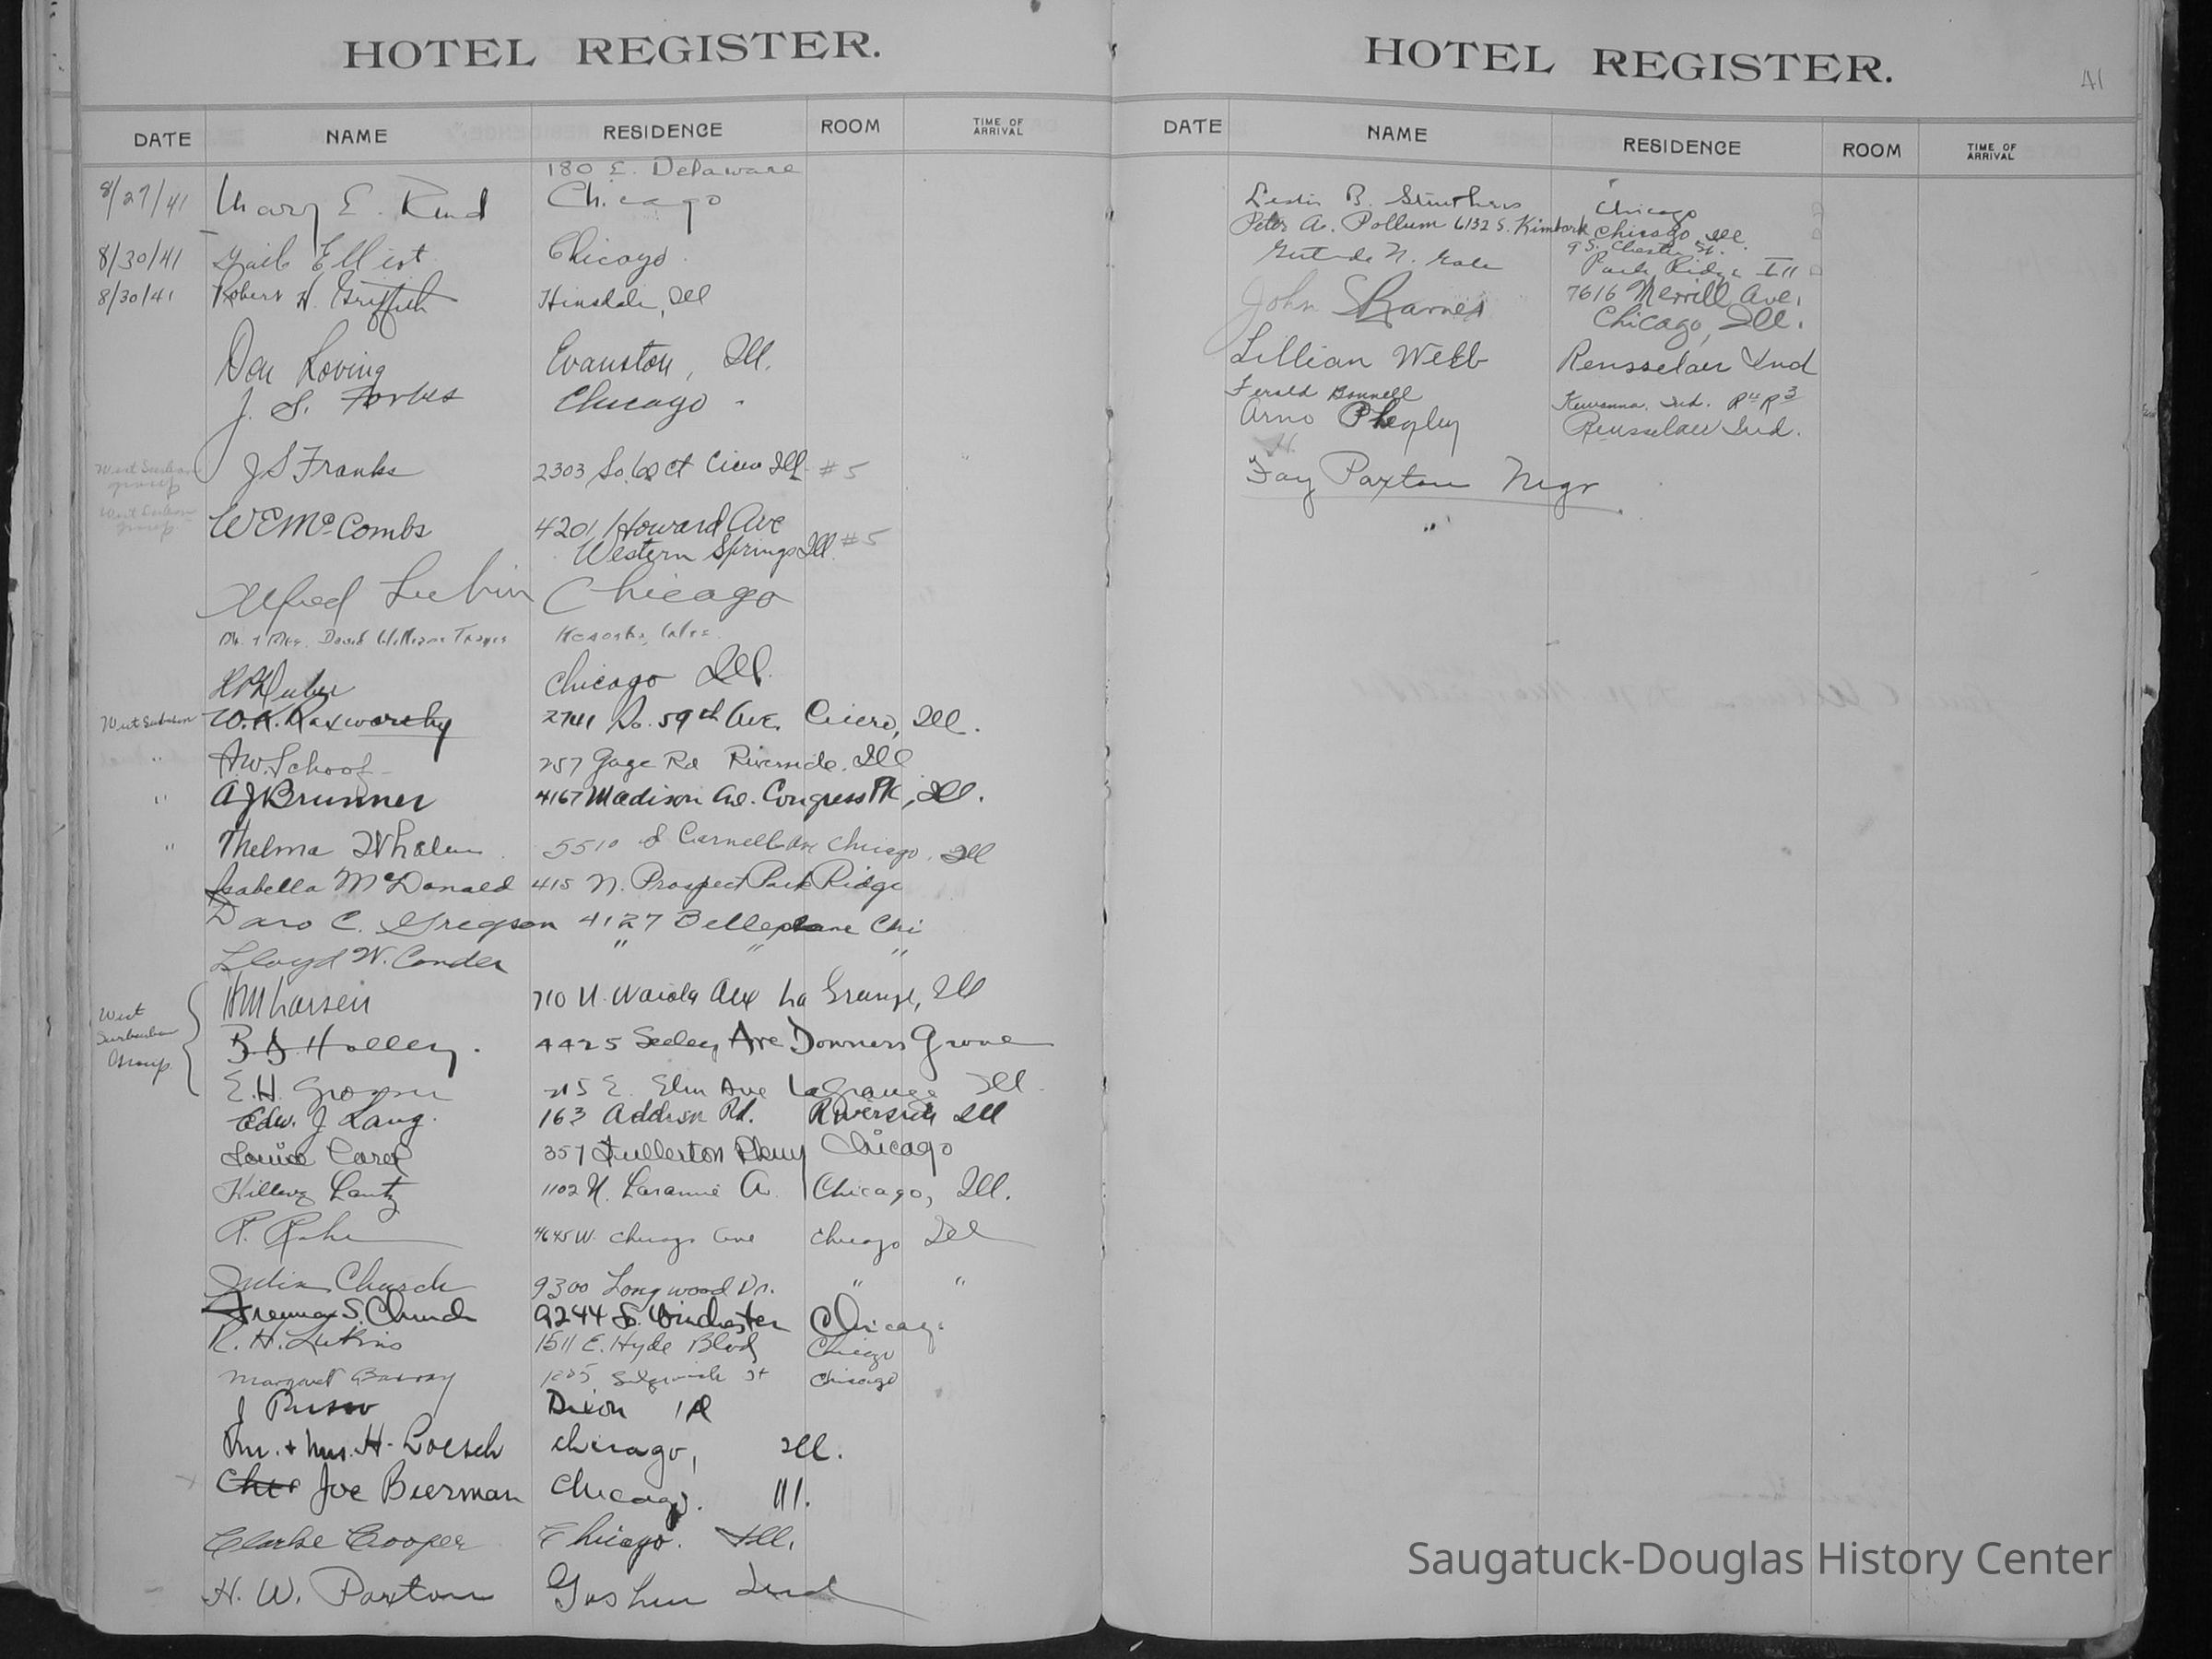 HOTEL REGISTER.
DATE NAME RESIDENCE ROOM TIME OF ARRIVAL
180 E. Delaware
8/27/41 Mary E. Chicago
8/30/41 Gail Elliot Chicago
8/30/41 Robert H. Griffith Hinsdale, Ill
Don Loving Evanston, Ill.
J. S. Forbes Chicago
West Suburban group J S Franks 2303 So. 60 Ct Cicero Ill #5
West Suburban group W E McCombs 4201 Howard Ave
Western Springs Ill #5
Alfred Lubin Chicago
Mr. & Mrs. David William Kenosha, Wis.
Huber Chicago Ill.
West Suburban W. A. Raxworthy 2741 So. 59th Ave. Cicero, Ill.
" A.W. Schoof 257 Gage Rd Riverside, Ill
" A J Brunner 4167 Madison Ave. Congress Pk, Ill.
" Thelma Whalen 5510 S Cornell Ave Chicago, Ill
Isabella McDonald 415 N. Prospect Park Ridge
Daro C. Gregson 4127 Belleplane Chi
Lloyd W. Conder " " "
West Surburban Group
H M Larsen 710 N. Waiola Ave La Grange, Ill
B. J. Holley. 4425 Seeley Ave Downers Grove
E. H. 215 E. Elm Ave LaGrange Ill.
Edw. J Lang. 163 Addison Rd. Riverside Ill
Louise Carol 357 Fullerton Pkwy Chicago
Lantz 1102 N. Laramie A. Chicago, Ill.
R. 4645 W. Chicago Ave Chicago Ill
Julia Church 9300 Longwood Dr. " "
Freeman S. Church 9244 S. Winchester Chicago
R. H. Lukins 1511 E. Hyde Blvd Chicago
Margaret Sedgwick St Chicago
J Russo Dixon Ill
Mr. & Mrs. H. Loesch Chicago, Ill.
Joe Bierman Chicago. Ill.
Clarke Cooper Chicago. Ill.
H. W. Paxton Goshen Ind
HOTEL REGISTER.
41
DATE NAME RESIDENCE ROOM TIME OF ARRIVAL
Leslie B. Struthers Chicago
Peter A. Pollum 6132 S. Kimbark Chicago Ill.
9 S. Chester St.
Gertrude N. Gale Park Ridge Ill
John S Barnes 7616 Merrill Ave.
Chicago, Ill.
Lillian Webb Rensselaer Ind
Ferald Bonnell Kewanna, Ind. R R 3
Arno Phegley Rensselaer Ind.
Fay Paxton Mgr
"
Saugatuck-Douglas History Center